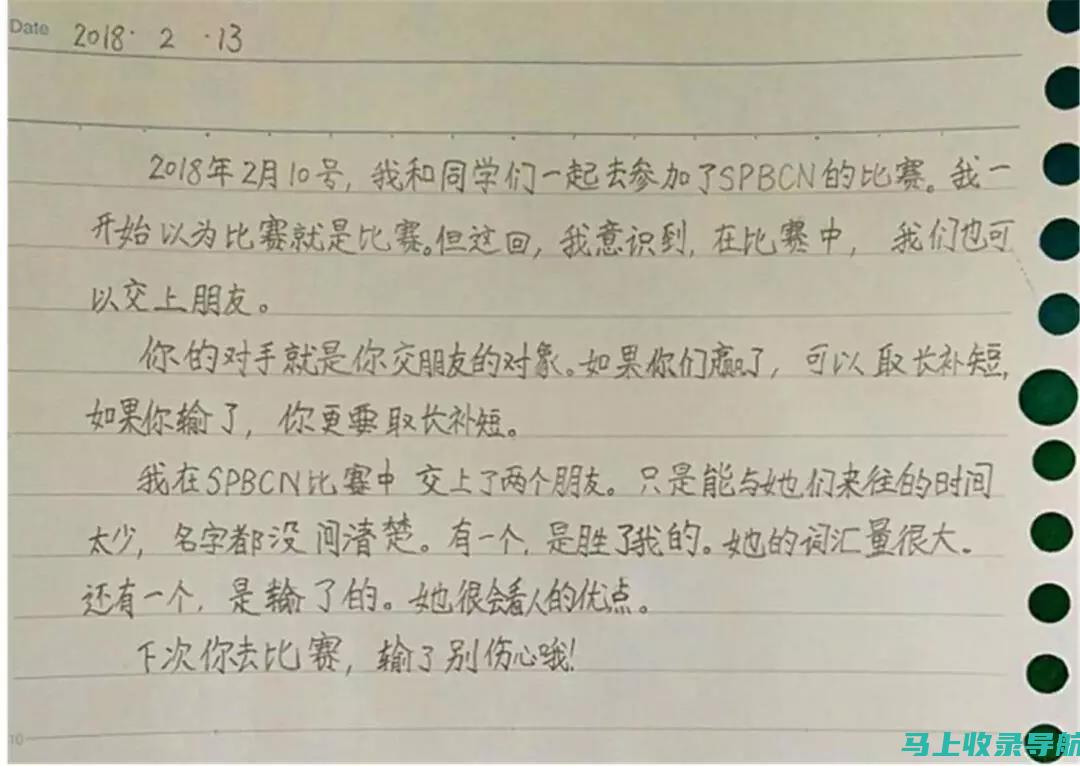 Date 2018. 2 .13
2018年2月10号,我和同学们一起去参加了SPBCN的比赛。我一
开始以为比赛就是比赛。但这回,我意识到,在比赛中, 我们也可
以交上朋友。
你的对手就是你交朋友的对象。如果你们赢了,可以取长补短,
如果你输了,你更要取长补短。
我在SPBCN比赛中 交上了两个朋友。只是能与她们来往的时间
太少,名字都没问清楚。有一个,是胜了我的。她的词汇量很大。
还有一个,是输了的。她很会看人的优点。
下次你去比赛,输了别伤心哦!
10
马上收录导航